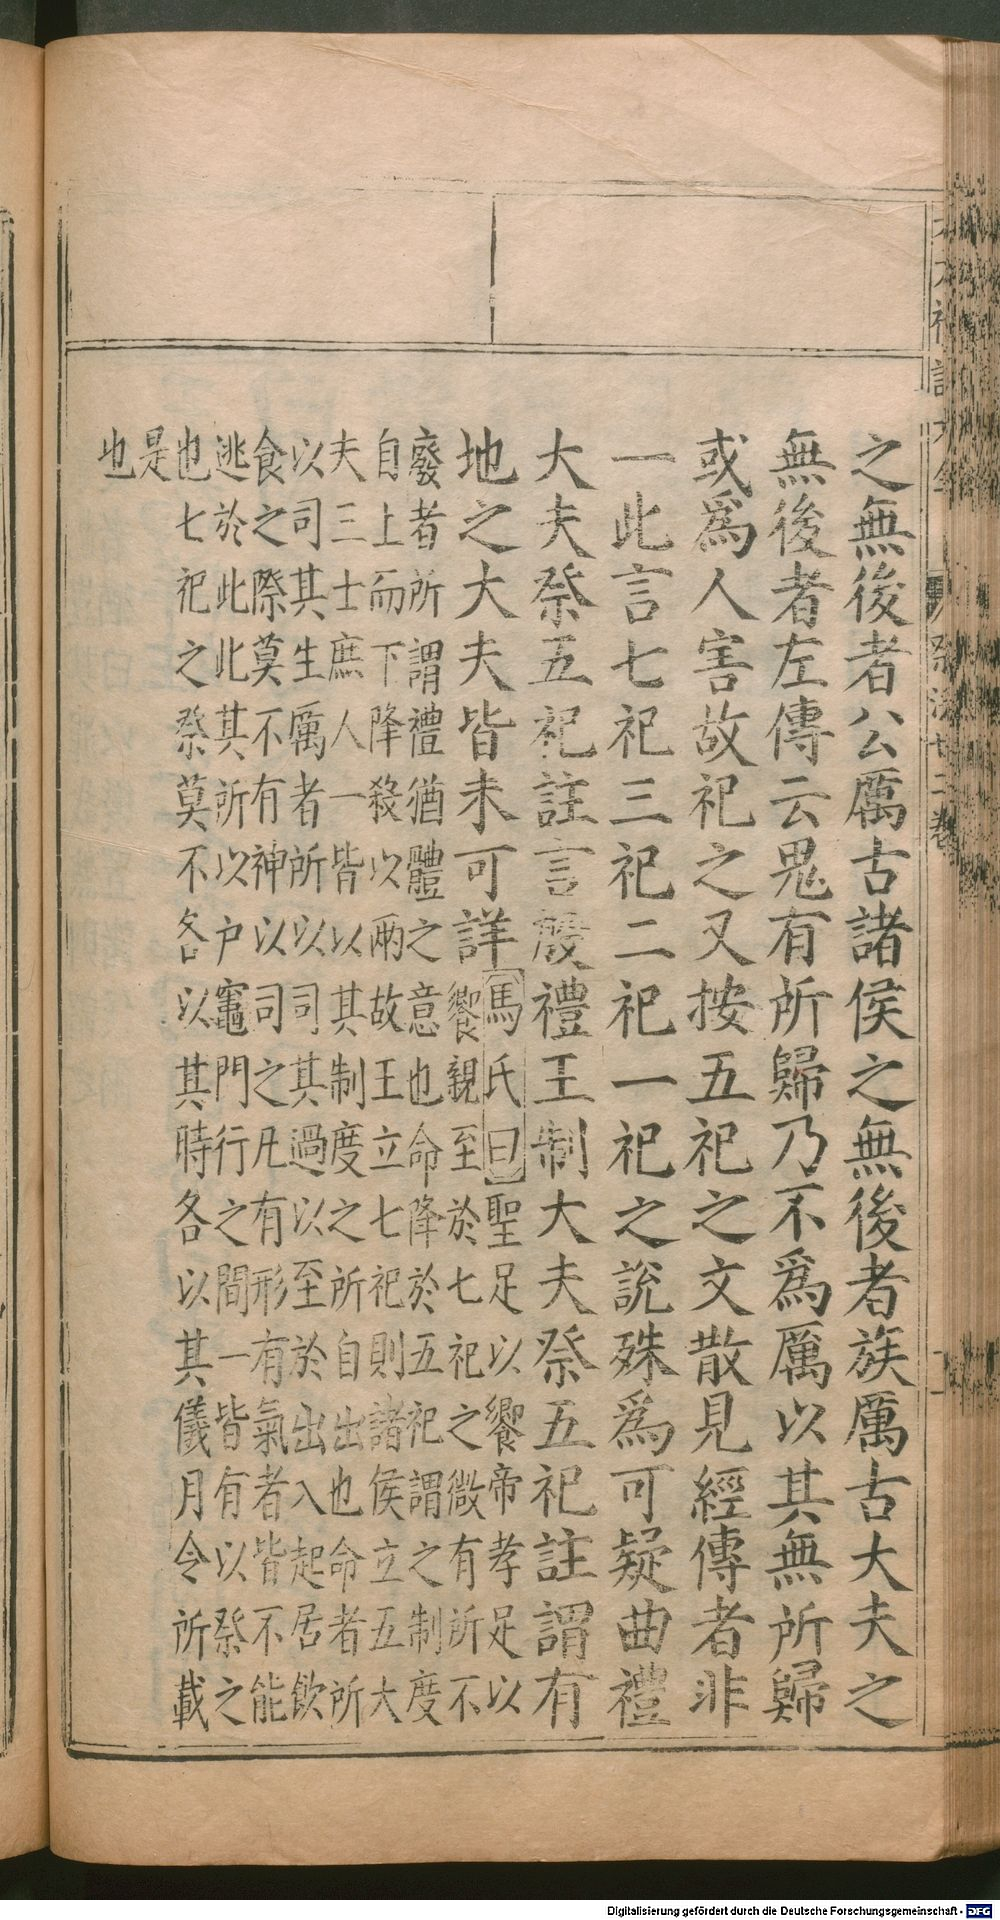 之無後者公厲古諸侯之無後者族厲古大夫之
無後者左傳云鬼有所歸乃不爲厲以其無所歸
或爲人害故祀之又按五祀之文散見經傳者非
一此言七祀三祀二祀一祀之說殊爲可疑曲禮
大夫祭五祀註言殷禮王制大夫祭五祀註謂有
地之大夫皆未可詳馬氏曰聖足以饗帝孝足以
饗親至於七祀之微有所不
廢者所謂禮猶體之意也命降於五祀謂之制度
自上而下降殺以兩故王立七祀則諸侯立五大
夫三士庶人一皆以其制度之所自出也命者所
以司其生厲者所以司其過以至於出入起居飲
食之際莫不有神以司之凡有形有氣者皆不能
逃於此此其所以户竈門行之間一皆有以祭之
也七祀之祭莫不各以其時各以其儀月令所載
是
也
Digitalisierung gefördert durch die Deutsche Forschungsgemeinschaft - DFG